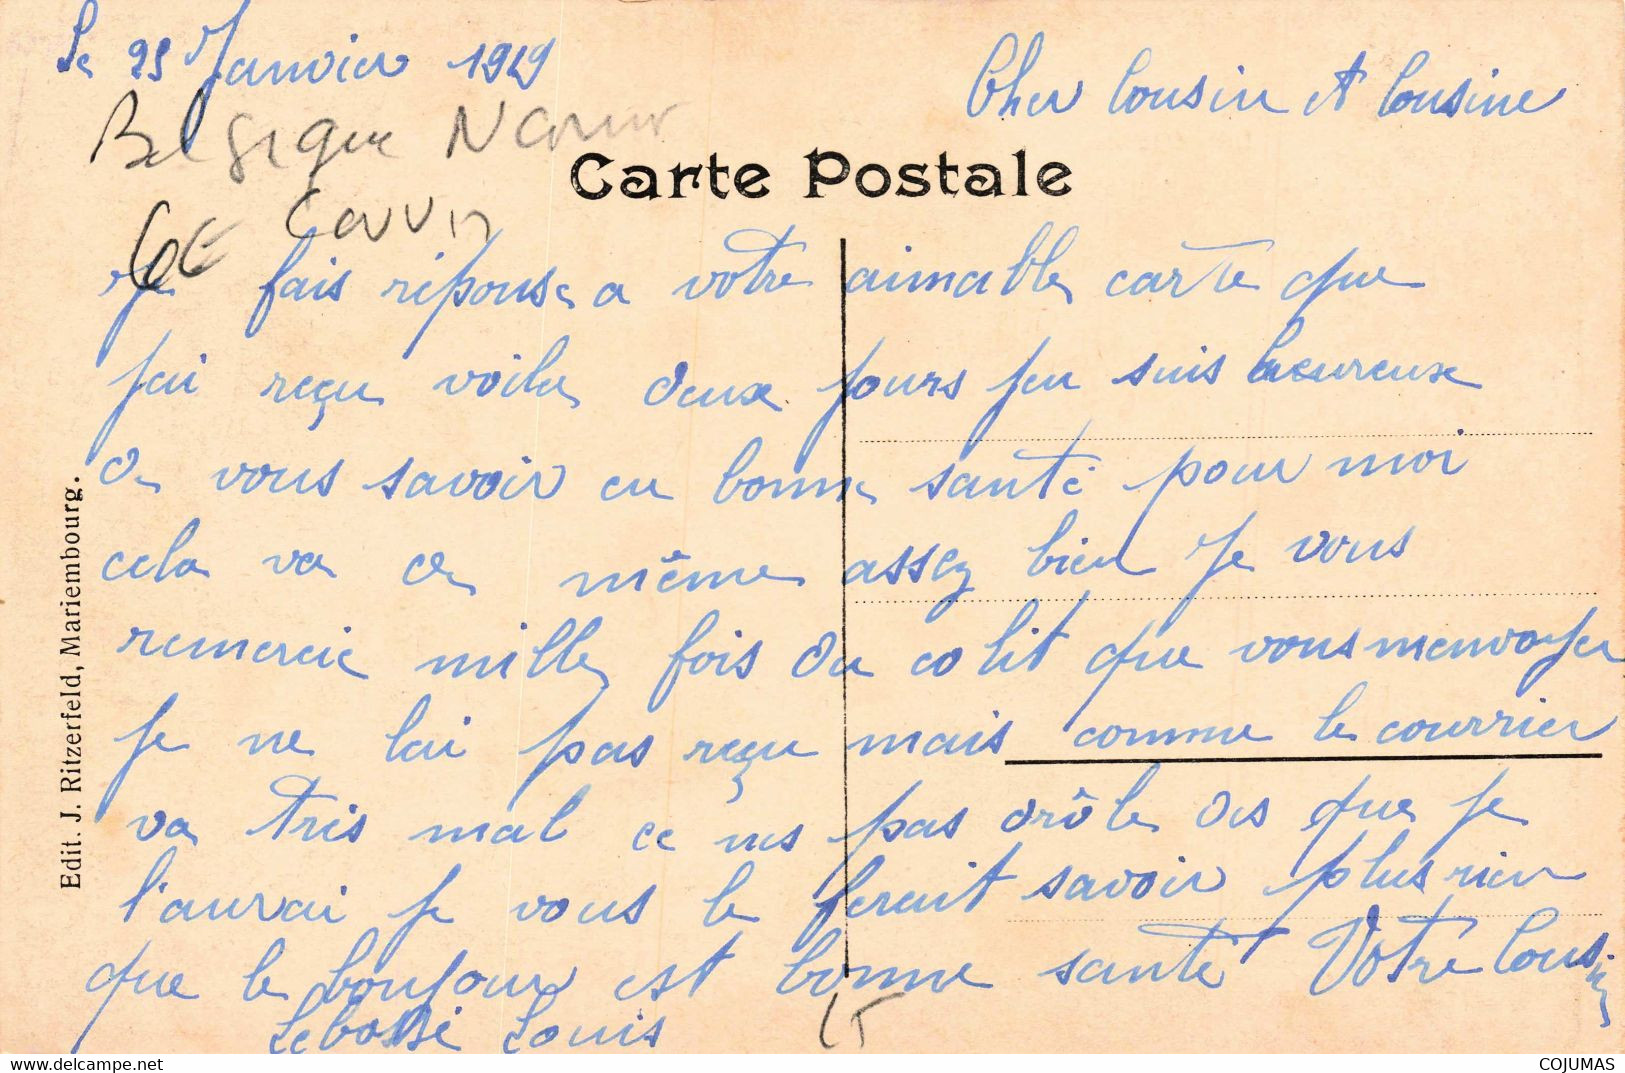 Le 25 Janvier 1919
Cher Cousin et Cousine
Belgique Namur
Carte Postale
6€ Couvin
Je fais réponse a votre aimable carte que
jai reçu voila deux jours jeu suis heureux
de vous savoir en bonne santé pour moi
cela va de même assez bien Je vous
remercie mille fois du colit que vous menvoyer
je ne lai pas reçu mais comme le courrier
va tres mal ce nes pas drôle des que je
l'aurai je vous le ferait savoir plus rien
que le bonjour est bonne santé Votre Cousin
Lebossé Louis
Edit. J. Ritzerfeld, Mariembourg.
COJUMAS